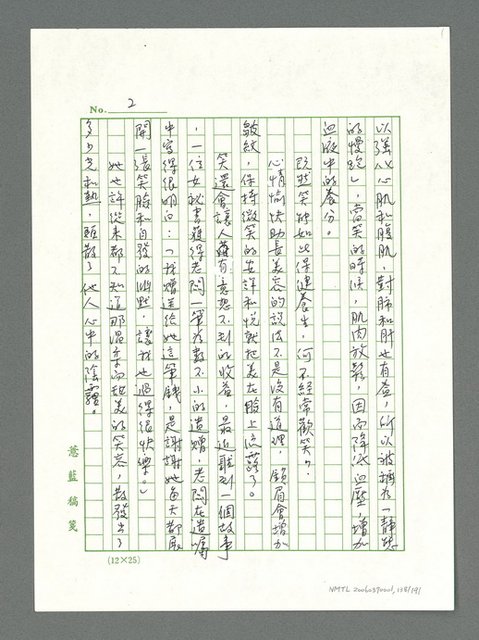 No. 2
以強化心肌和腹肌，對肺和肝也有益，所以被稱為「靜態
的慢跑」，當笑的時候，肌肉放鬆，因而降低血壓，增加
血液中的養分。
既然笑能如此保健養生，何不經常歡笑？
心情愉快助長美容的說法不是沒有道理，鎖眉會增加
皺紋，保持微笑的安詳和悅就把美在臉上流露了。
笑還會讓人擁有意想不到的收益，最近聽到一個故事
，一位女秘書獲得老闆一筆為數不小的遺贈，老闆在遺囑
中寫得很明白：「我贈送給她這筆錢，是謝謝她每天都展
開一張笑臉和自發的幽默，讓我也過得很快樂。」
她也許從來都不知道那溫柔而甜美的笑容，散發出了
多少光和熱，驅散了他人心中的陰霾。
薏藍稿箋
(12×25)
NMTL 20060370001, 138/191